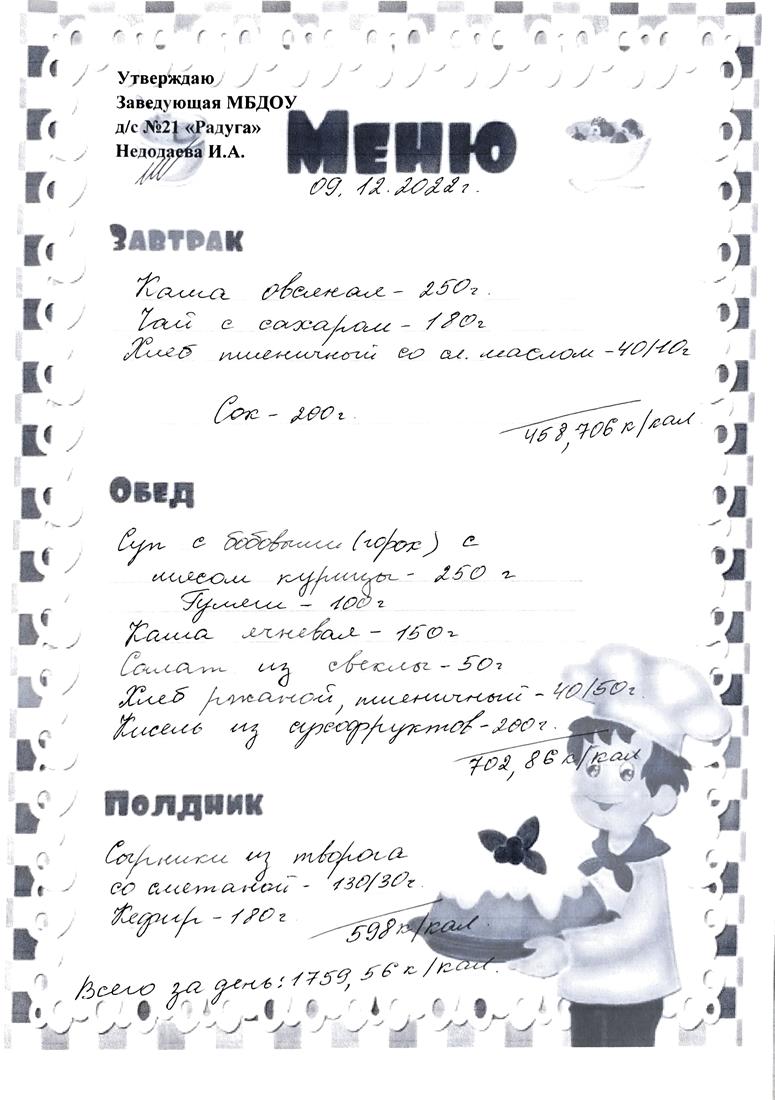 Утверждаю
Заведующая МБДОУ
д/с №21 «Радуга»
Недодаева И.А.
Меню
09.12.2022г.
Завтрак
Каша овсяная - 250г.
Чай с сахаром - 180г
Хлеб пшеничный со сл. маслом - 40/10г
Сок - 200г.
458,706 к/кал
Обед
Суп с бобовыми (горох) с
мясом курицы - 250 г
Гуляш - 100г
Каша ячневая - 150г
Салат из свеклы - 50г
Хлеб ржаной, пшеничный - 40/50г.
Кисель из сухофруктов - 200г.
702,86 к/кал
Полдник
Сырники из творога
со сметаной - 130/30г.
Кефир - 180г.
598 к/кал
Всего за день: 1759,56 к/кал.